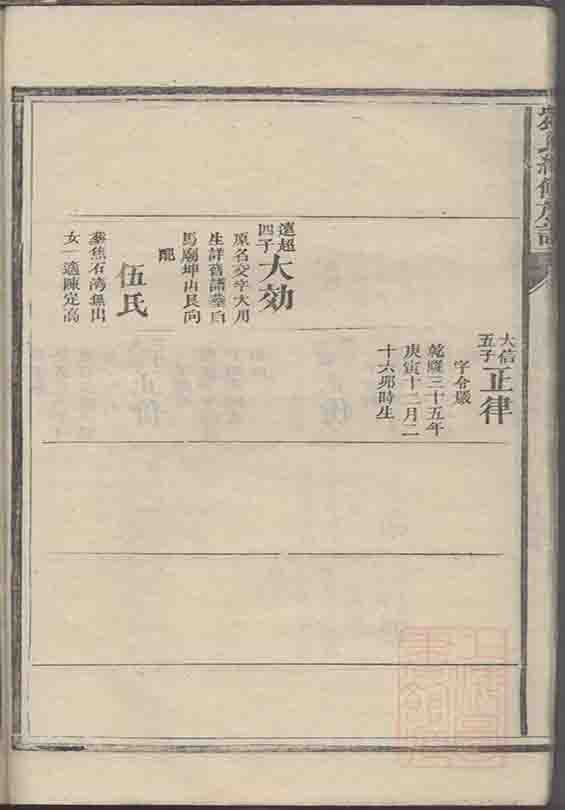 大信五子
正律
字令嚴
乾隆三十五年
庚寅十二月二
十六卯時生
遠超四子
大効
原名交字大用
生詳舊譜葬白
馬廟坤山艮向
配
伍氏
葬焦石湾無出
女一適陳定高